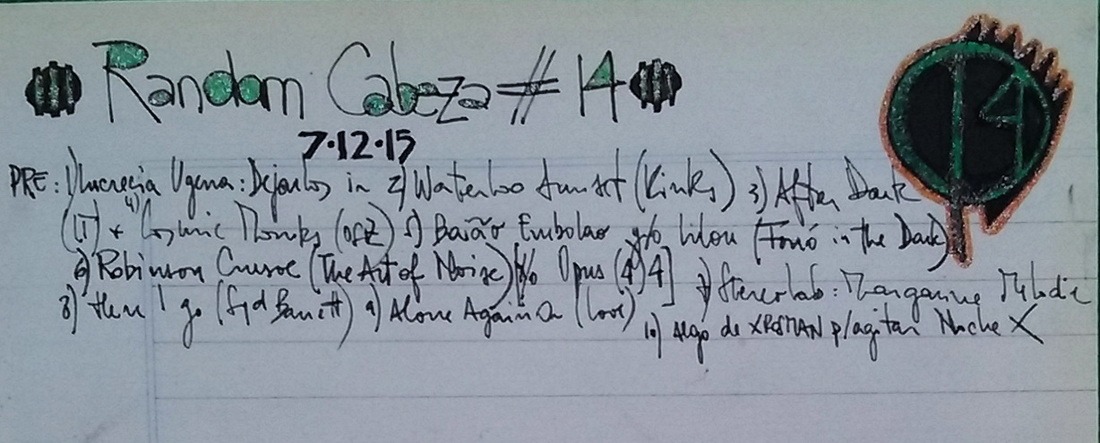 Random Cabeza # 14
14
7·12·15
PRE: 1) Lucrecia : in 2) Waterloo Sunset (Kinks) 3) After Dark
4) + Cosmic Monks 5) Baião Embolao Lilou (Forró in the Dark)
6) Robinson Crusoe (The Art of Noise) Opus (4) 4] 7) Stereolab: Margarine Melodie
8) Here I go (Syd Barrett) 9) Alone Again Or (Love)
10) Algo de p/agitar Noche X